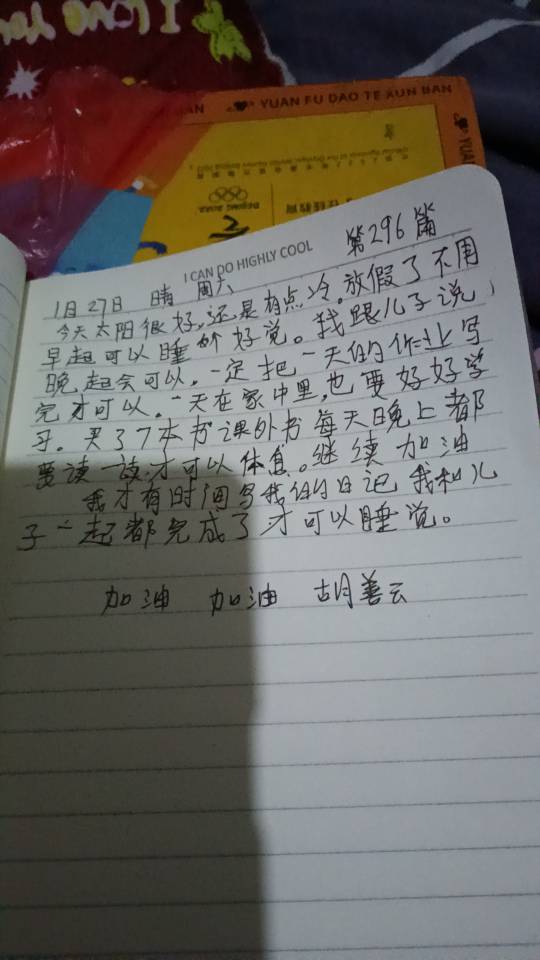 I Love You
YUAN FU DAO TE XUN BAN
YUAN
BEIJING 2022
在线教育
I CAN DO HIGHLY COOL
第296篇
1月27日 晴 周六
今天太阳很好,还是有点冷。放假了不用
早起可以睡个好觉。我跟儿子说,
晚起会可以。一定把一天的作业写
完才可以。一天在家中里,也要好好学
习。买了7本书课外书每天晚上都
要读一读才可以休息。继续加油
我才有时间写我的日记 我和儿
子一起都完成了才可以睡觉。
加油 加油 胡善云